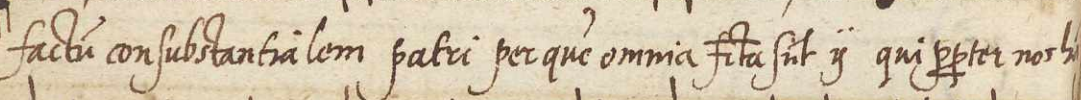 factū consubstantialem patri per quē omnia fcta sūt ij qui ꝓpter nos h